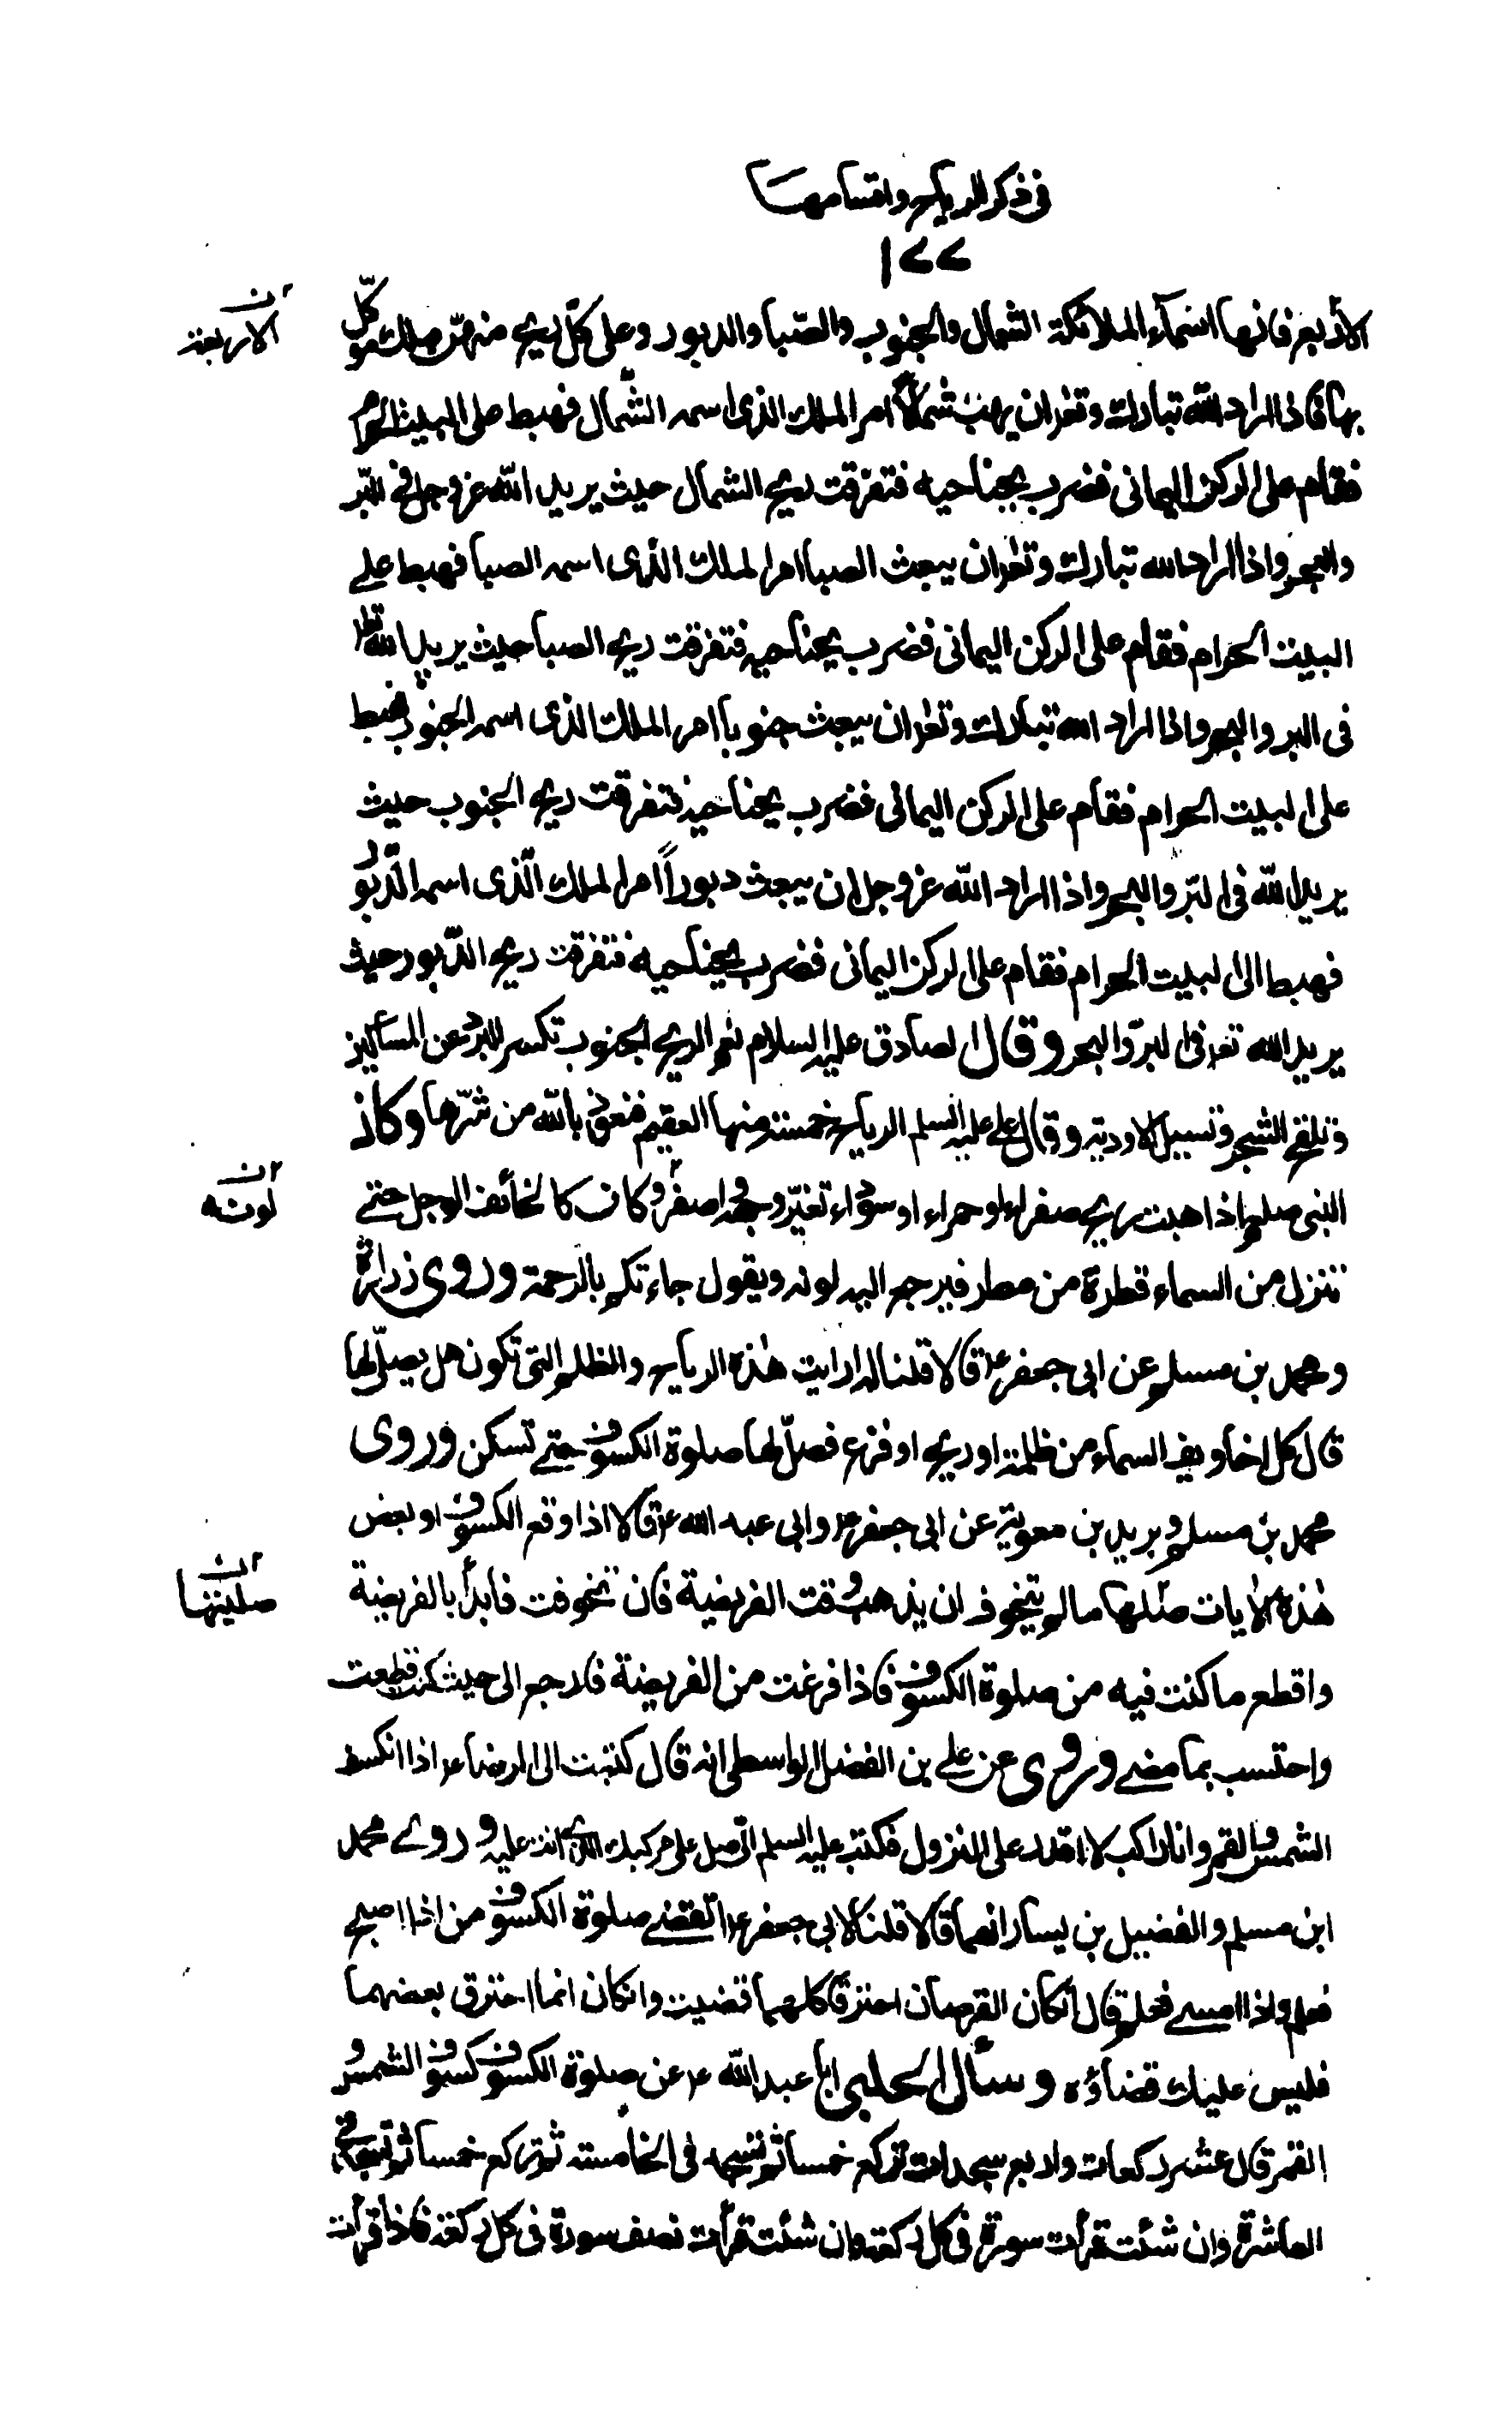 فى ذكر الرياح واقسامها
١٧٧
الأربع فانها اسماء الملائكة الشمال والجنوب والصّبا والدبور وعلى كلّ ريح منهنّ ملك موكّل
ن الاربعة
بها فاذا اراد الله تبارك وتعر ان يهبّ شمالاً امر الملك الذى اسمه الشّمال فهبط على البيت الحرم
فقام على الركن اليمانى فضرب بجناحيه فتفرّقت ريح الشمال حيث يريد الله عزوجل فى البّر
والبحر واذا اراد الله تبارك وتعر ان يبعث الصبا امر الملك الذى اسمه الصبا فهبط علے
البيت الحرام فقام على الركن اليمانى فضرب بجناحيه فتفرقت ريح الصبا حيث يريد الله تعر
فى البر والبحر واذا اراد الله تبارك وتعر ان يبعث جنوبا امر الملك الذى اسمه الجنوب فهبط
على البيت الحرام فقام على الركن اليمانى فضرب بجناحيه فتفرقت ريح الجنوب حيث
يريد الله فى البّر والبحر واذا اراد الله عزوجل ان يبعث دبوراً امر الملك الّذى اسمه الدّبور
فهبط الى البيت الحرام فقام على الركن اليمانى فضرب بجناحيه فتفرقت ريح الدّبور حيث
يريد الله تعر فى البرّ والبحر وقال الصادق عليه السلام نعم الريح الجنوب تكسر البرد عن المساكين
وتلقح الشجر وتسيل الاودية وقال على عليه السلم الرياح خمسة منها العقيم فنعوذ بالله من شرّها وكان
النبى صلعم اذا هبت ريح صفراء او حمراء او سوداء تغيّر وجهه واصفر وكان كالخائف الوجل حتى
ن لونه
تنزل من السماء قطرة من مطر فيرجع اليه لونه ويقول جاءتكم بالرحمة وروى زرارة
ومحمد بن مسلم عن ابى جعفر ع قالا قلنا له ارايت هذه الرياح والظلم التى تكون هل يصلّى لها
قال كل اخاويف السماء من ظلمة او ريح او فزع فصلّ لها صلوة الكسوف حتے تسكن وروى
محمد بن مسلم وبريد بن معوية عن ابى جعفر ع وابى عبد الله ع قالا اذا وقع الكسوف او بعض
هذه الايات صلّها ما لم تتخوف ان يذهب وقت الفريضة فان تخوفت فابدأ بالفريضة
ن صليتها
واقطع ما كنت فيه من صلوة الكسوف فاذا فرغت من الفريضة فارجع الى حيث كنت قطعت
واحتسب بما مضے وروى عن علے بن الفضل الواسطى انه قال كتبت الى الرضا ع اذا انكسف
الشمس والقمر وانا راكب لا اقدر على النزول فكتب عليه السلم الّى صل على مركبك الذى انت عليه وروے محمد
ابن مسلم والفضيل بن يسار انهما قالا قلنا لابى جعفر ع اتقضے صلوة الكسوف من اذا اصبح
فعلم واذا امسے فعلم قال ان كان القرصان احترقا كلهما قضيت وانكان انما احترق بعضهما
فليس عليك قضاؤه وسأل الحلبى ابا عبد الله ع عن صلوة الكسوف كسوف الشمس و
القمر قال عشر ركعات واربع سجدات تركع خمسا ثم تسجد فى الخامسة ثم تركع خمسا ثم تسجد فى
العاشرة وان شئت قرأت سورة فى كل ركعة وان شئت قرأت نصف سورة فى كل ركعة فاذا قرأت